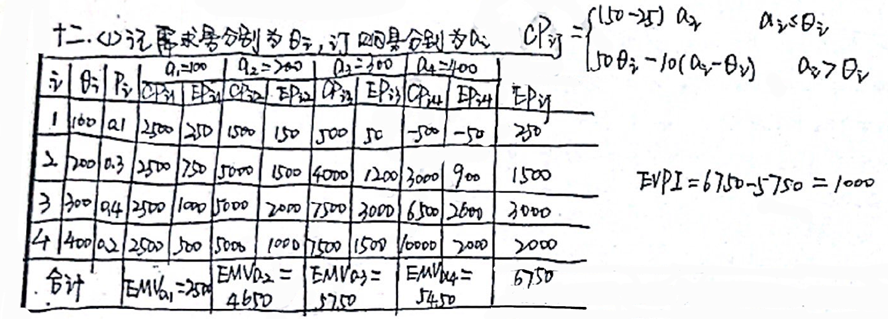 十二.(1)记需求量分别为θi,订购量分别为ai CPij={(50-25)ai ai≤θi
50θi-10(ai-θi) ai>θi
i θi Pi a1=100 a2=200 a3=300 a4=400
CPi1 EPi1 CPi2 EPi2 CPi3 EPi3 CPi4 EPi4 EPij
1 100 0.1 2500 250 1500 150 500 50 -500 -50 250
2 200 0.3 2500 750 5000 1500 4000 1200 3000 900 1500
EVPI=6750-5750=1000
3 300 0.4 2500 1000 5000 2000 7500 3000 6500 2600 3000
4 400 0.2 2500 500 5000 1000 7500 1500 10000 2000 2000
合计 EMVa1=2500 EMVa2=4650 EMVa3=5750 EMVa4=5450 6750